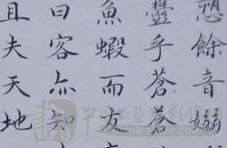 愬餘音嫋
鬱乎蒼蒼
魚蝦而友
曰客亦知
且夫天地